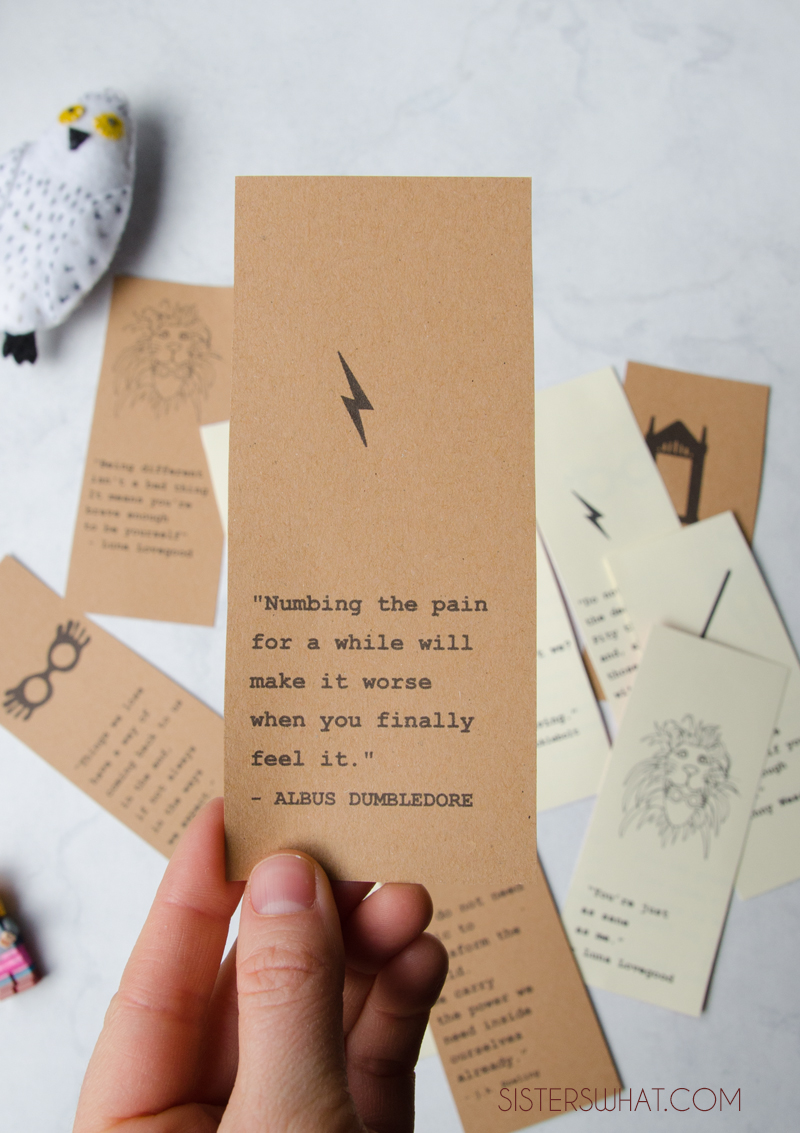 "Numbing the pain
for a while will
make it worse
when you finally
feel it."
- ALBUS DUMBLEDORE
"Being different
isn't a bad thing
It means you're
brave enough
to be yourself"
- Luna Lovegood
"Things we lose
have a way of
coming back to us
in the end,
if not always
in the way
we expect."
do not need
ic to
nsform the
ld.
e carry
the power we
need inside
ourselves
already."
- J.K. Rowling
"You're just
as sane
as me."
Luna Lovegood
SISTERSWHAT.COM